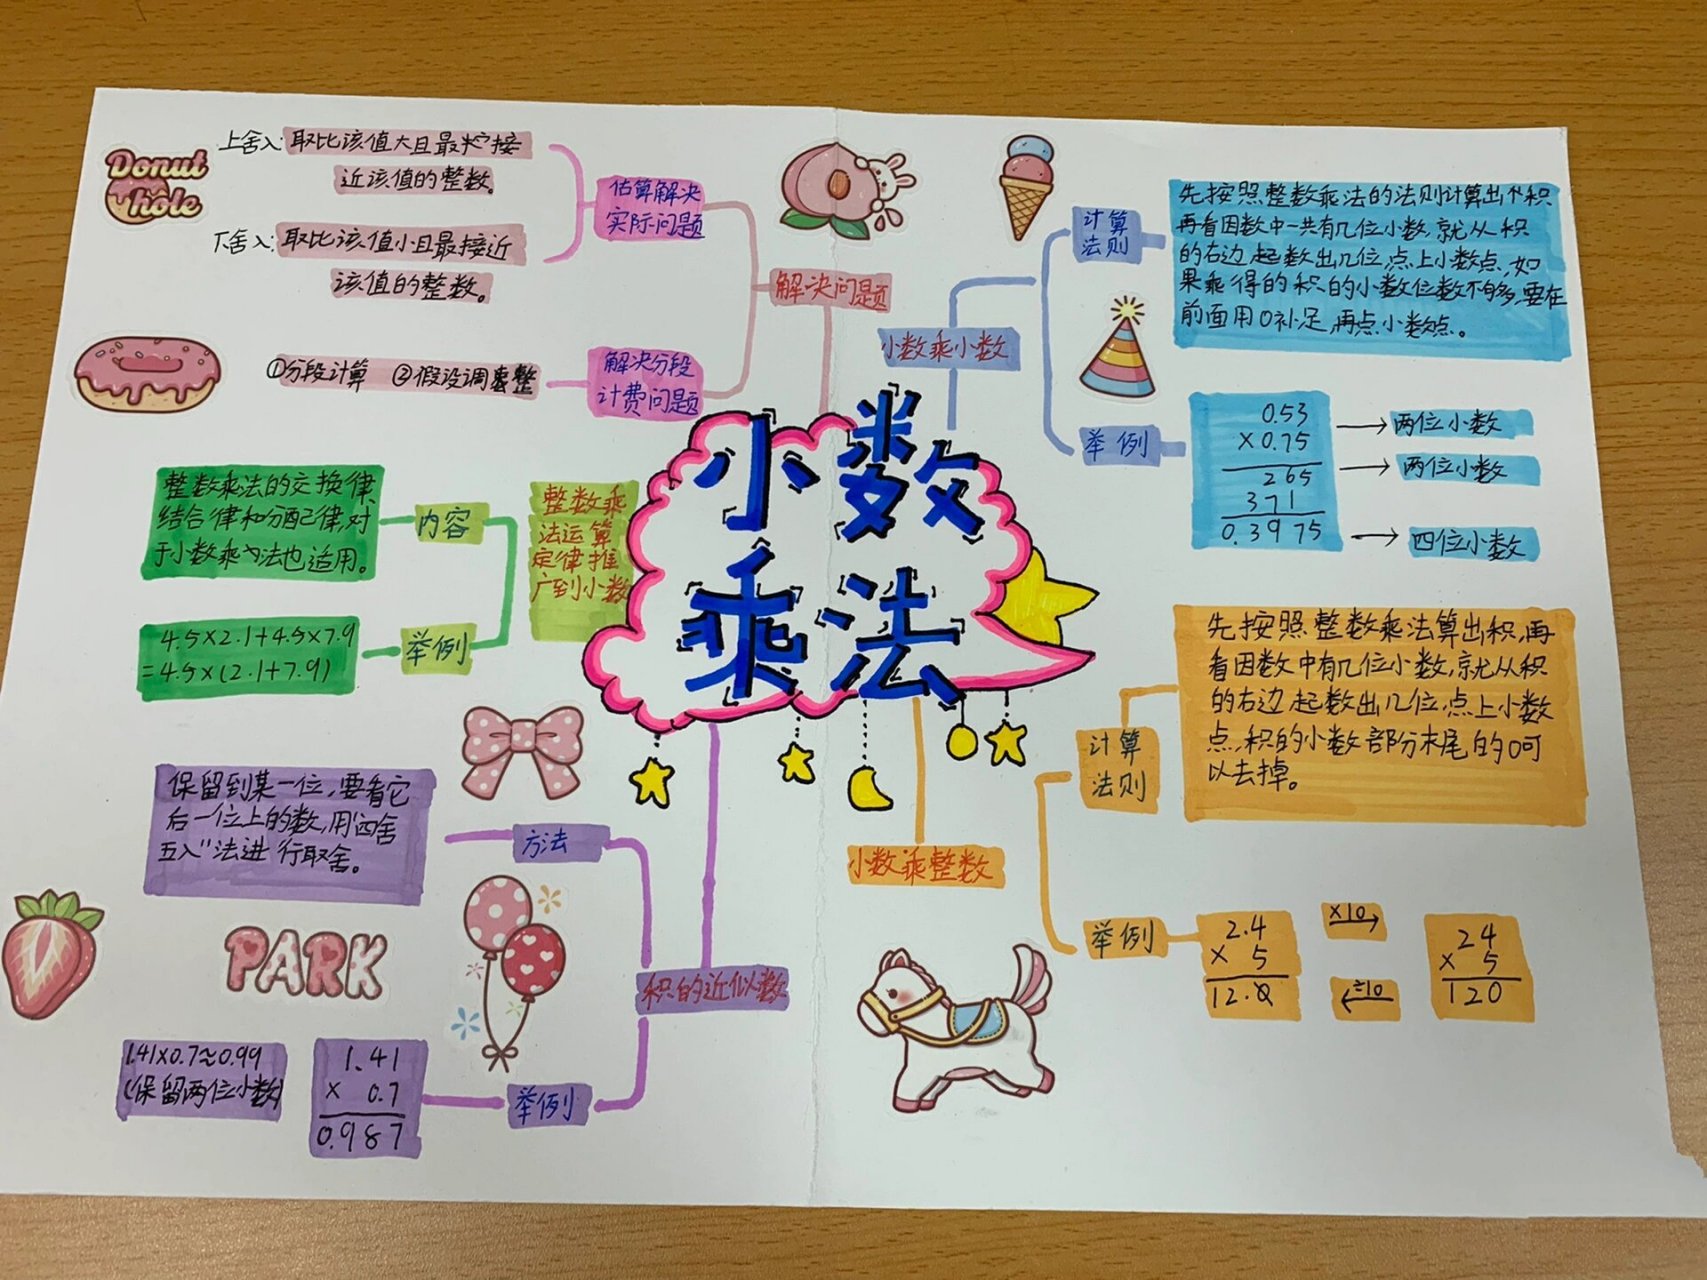 小数
乘法
Donut
hole
上舍入:取比该值大且最接
近该值的整数。
下舍入:取比该值小且最接近
该值的整数。
估算解决
实际问题
解决问题
①分段计算 ②假设调整
解决分段
计费问题
整数乘法的交换律、
结合律和分配律,对
于小数乘法也适用。
内容
整数乘
法运算
定律推
广到小数
4.5×2.1+4.5×7.9
=4.5×(2.1+7.9)
举例
保留到某一位,要看它
后一位上的数,用“四舍
五入”法进行取舍。
方法
PARK
积的近似数
1.41×0.7≈0.99
(保留两位小数)
1.41
× 0.7
0.987
举例
小数乘小数
计算
法则
先按照整数乘法的法则计算出个积
再看因数中一共有几位小数,就从积
的右边起数出几位,点上小数点,如
果乘得的积的小数位数不够,要在
前面用0补足,再点小数点。
举例
0.53
×0.75
265
371
0.3975
→两位小数
→两位小数
→四位小数
小数乘整数
计算
法则
先按照整数乘法算出积,再
看因数中有几位小数,就从积
的右边起数出几位,点上小数
点,积的小数部分末尾的0可
以去掉。
举例
2.4
× 5
12.0
×10
÷10
24
× 5
120